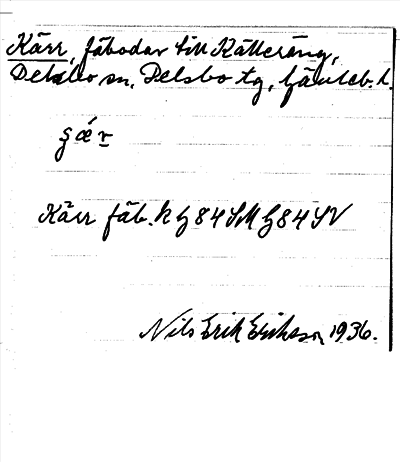 Kärr, fäbodar till Källeräng,
Delsbo sn, Delsbo tg, Gävleb. l.
Kärr fäb. k G 84 SM G 84 SV
Nils Erik Eriksson 1936.